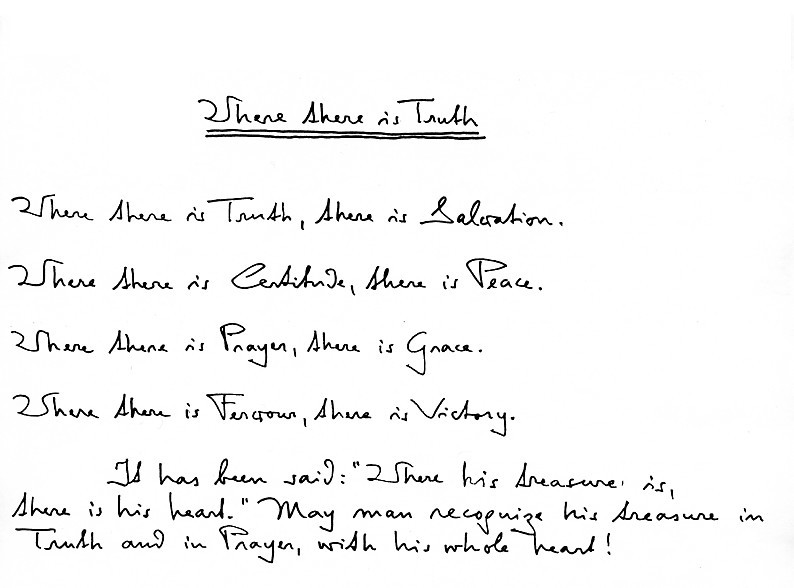 Where there is Truth
Where there is Truth, there is Salvation.
Where there is Certitude, there is Peace.
Where there is Prayer, there is Grace.
Where there is Fervour, there is Victory.
It has been said: "Where his treasure is,
there is his heart." May man recognize his treasure in
Truth and in Prayer, with his whole heart!